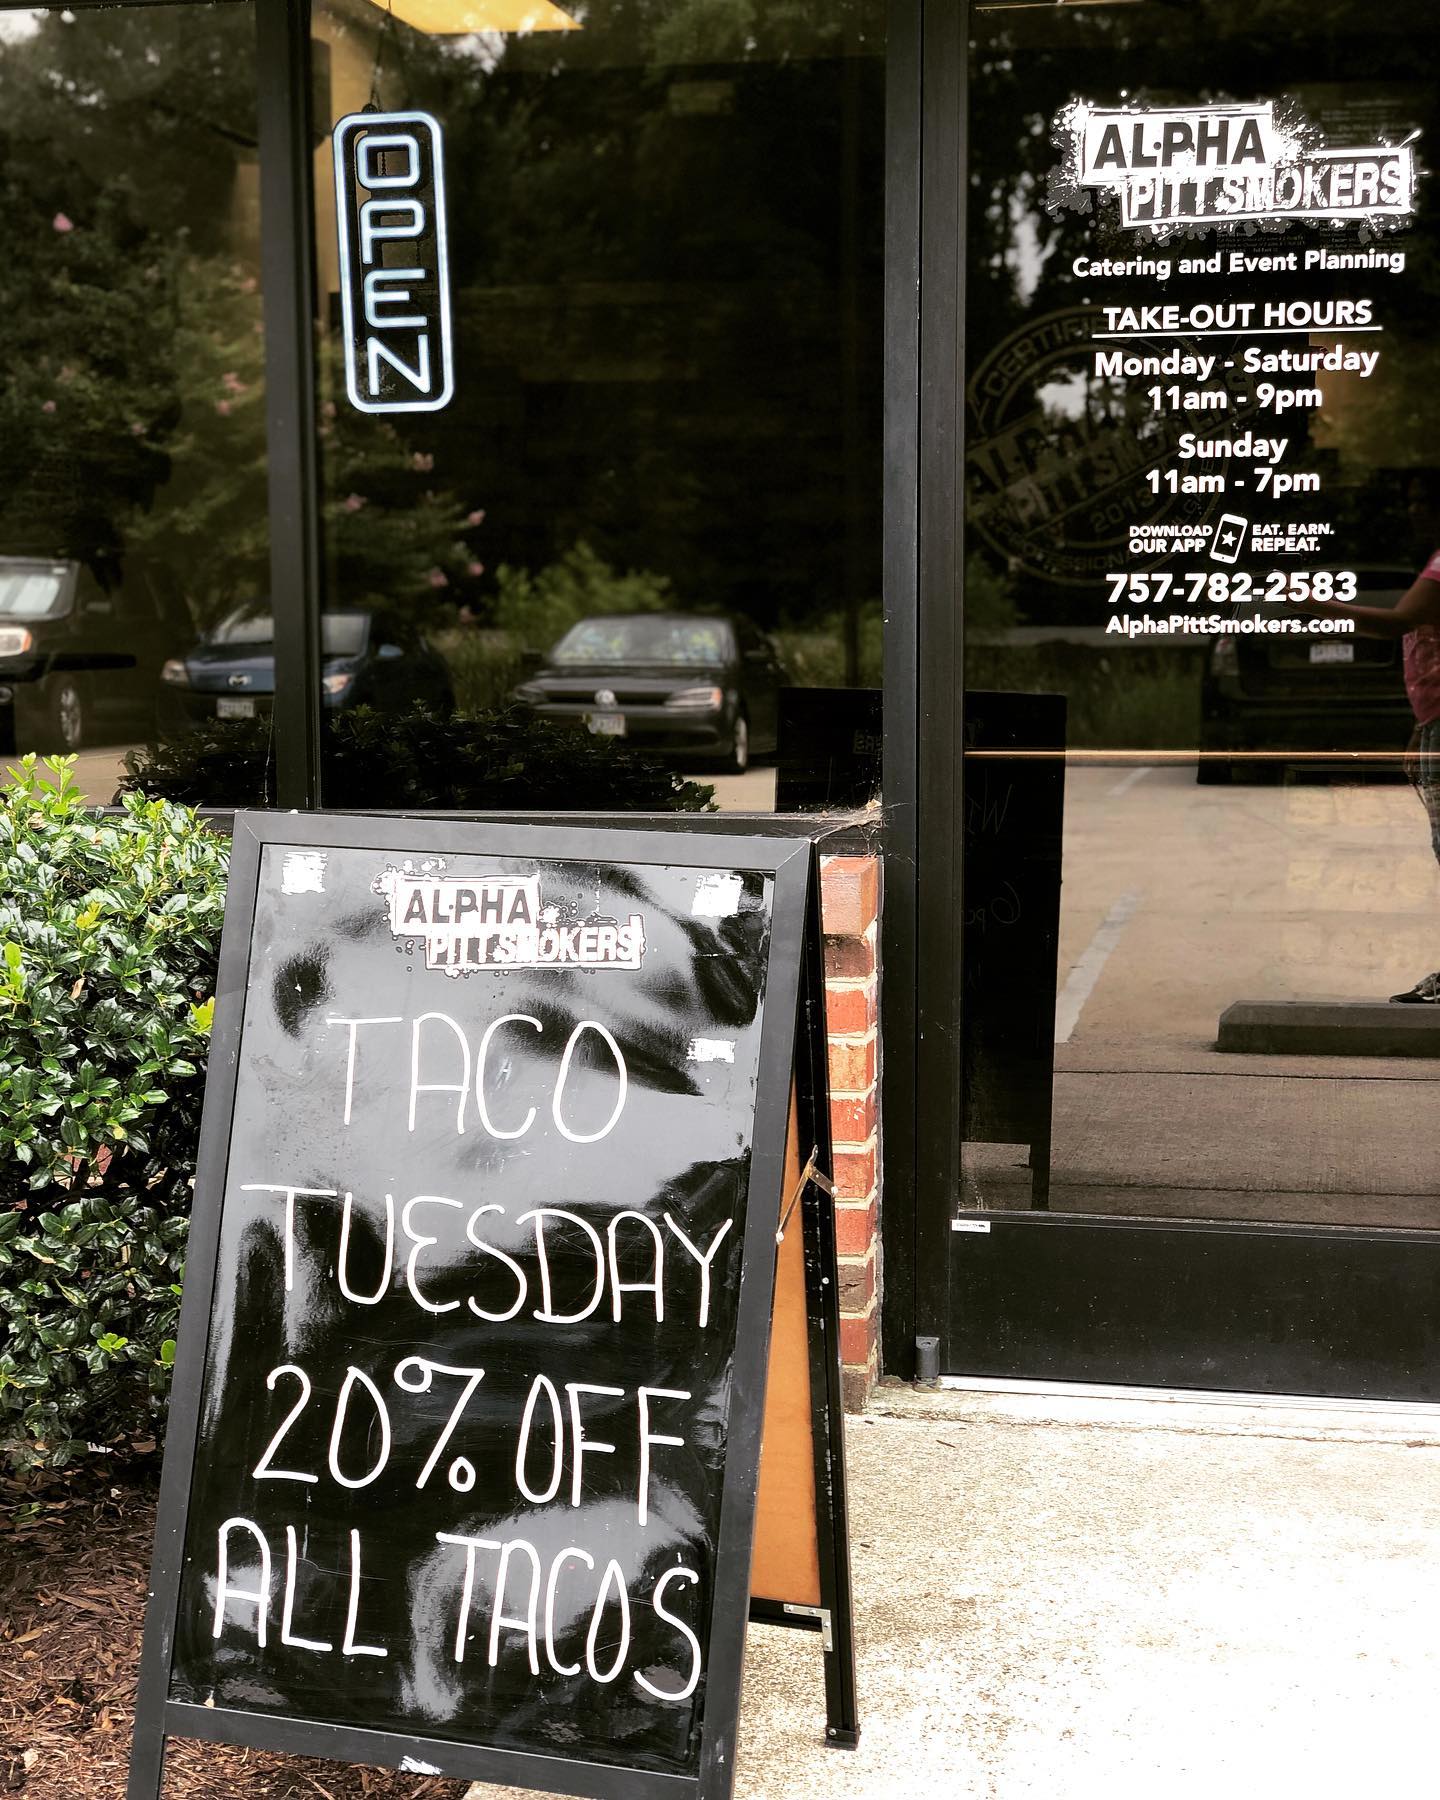 OPEN
ALPHA
PITT SMOKERS
Catering and Event Planning
TAKE-OUT HOURS
Monday - Saturday
11am - 9pm
Sunday
11am - 7pm
DOWNLOAD OUR APP
EAT. EARN. REPEAT.
757-782-2583
AlphaPittSmokers.com
ALPHA
PITT SMOKERS
TACO
TUESDAY
20% OFF
ALL TACOS